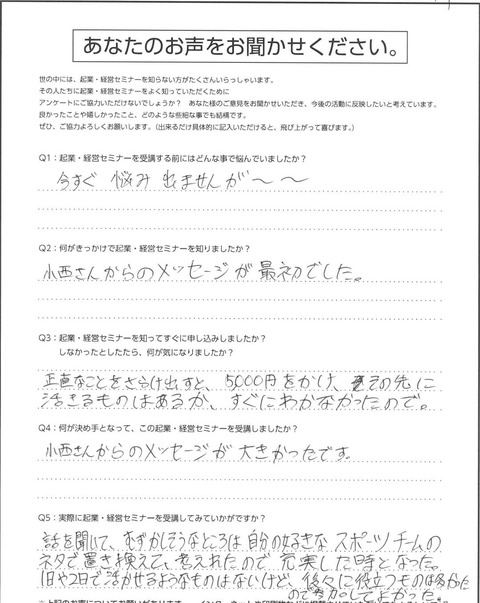 あなたのお声をお聞かせください。
世の中には、起業・経営セミナーを知らない方がたくさんいらっしゃいます。
その人たちに起業・経営セミナーをよく知っていただくために
アンケートにご協力いただけないでしょうか？ あなた様のご意見をお聞かせいただき、今後の活動に反映したいと考えています。
良かったことや嬉しかったこと、どのような些細な事でも結構です。
ぜひ、ご協力よろしくお願いします。（出来るだけ具体的に記入いただけると、飛び上がって喜びます。）
Q1：起業・経営セミナーを受講する前にはどんな事で悩んでいましたか？
今すぐ 悩み 出ませんが～～
Q2：何がきっかけで起業・経営セミナーを知りましたか？
小西さんからのメッセージが最初でした。
Q3：起業・経営セミナーを知ってすぐに申し込みしましたか？
しなかったとしたら、何が気になりましたか？
正直なことをさらけ出すと、5000円をかけ、その先に
活きるものはあるか、すぐにわかなかったので。
Q4：何が決め手となって、この起業・経営セミナーを受講しましたか？
小西さんからのメッセージが大きかったです。
Q5：実際に起業・経営セミナーを受講してみていかがですか？
話を聞いて、むずかしそうなところは自分の好きなスポーツチームの
ネタで置き換えて、考えれたので充実した時となった。
1日や2日で活かせるようなものはないけど、後々に役立つものは多かった
ので参加してよかった。